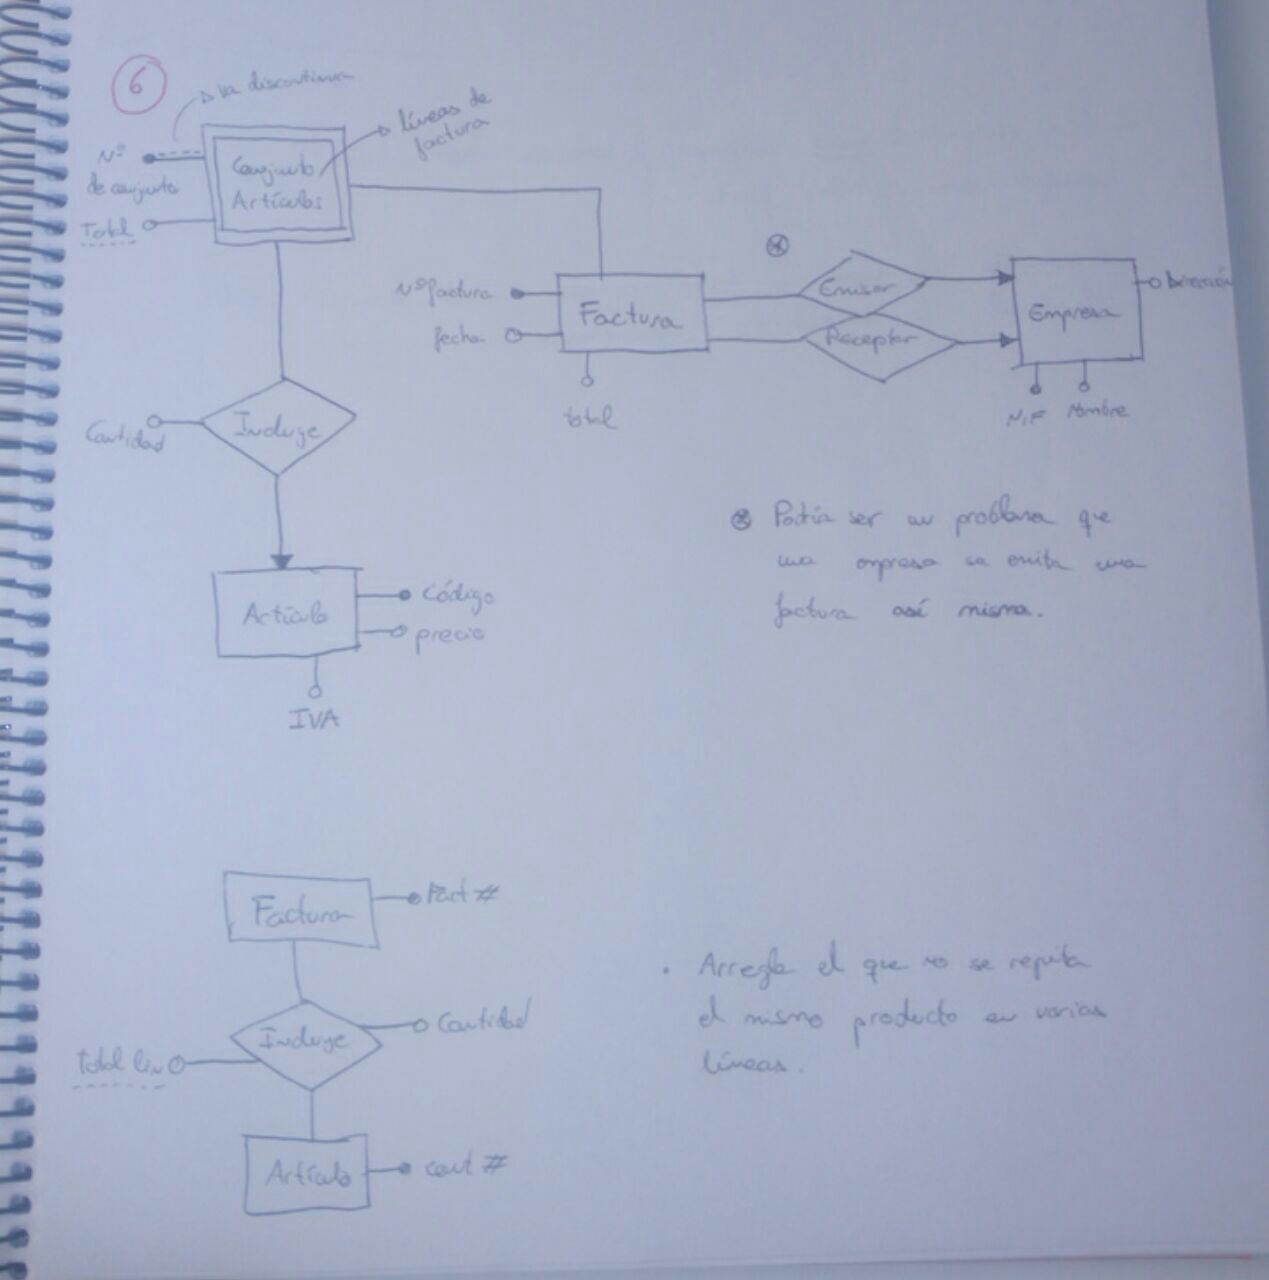 6
va discontinua
líneas de
factura
Nº
de conjunto
Total
Conjunto
Artículos
Nº factura
fecha
Factura
total
Emisor
Receptor
Empresa
Dirección
N.I.F
Nombre
Cantidad
Incluye
Artículo
Código
precio
IVA
Podría ser un problema que
una empresa se emita una
factura así misma.
Factura
Fact #
Incluye
Cantidad
Total lin
Artículo
#
· Arregla el que no se repita
el mismo producto en varias
líneas.